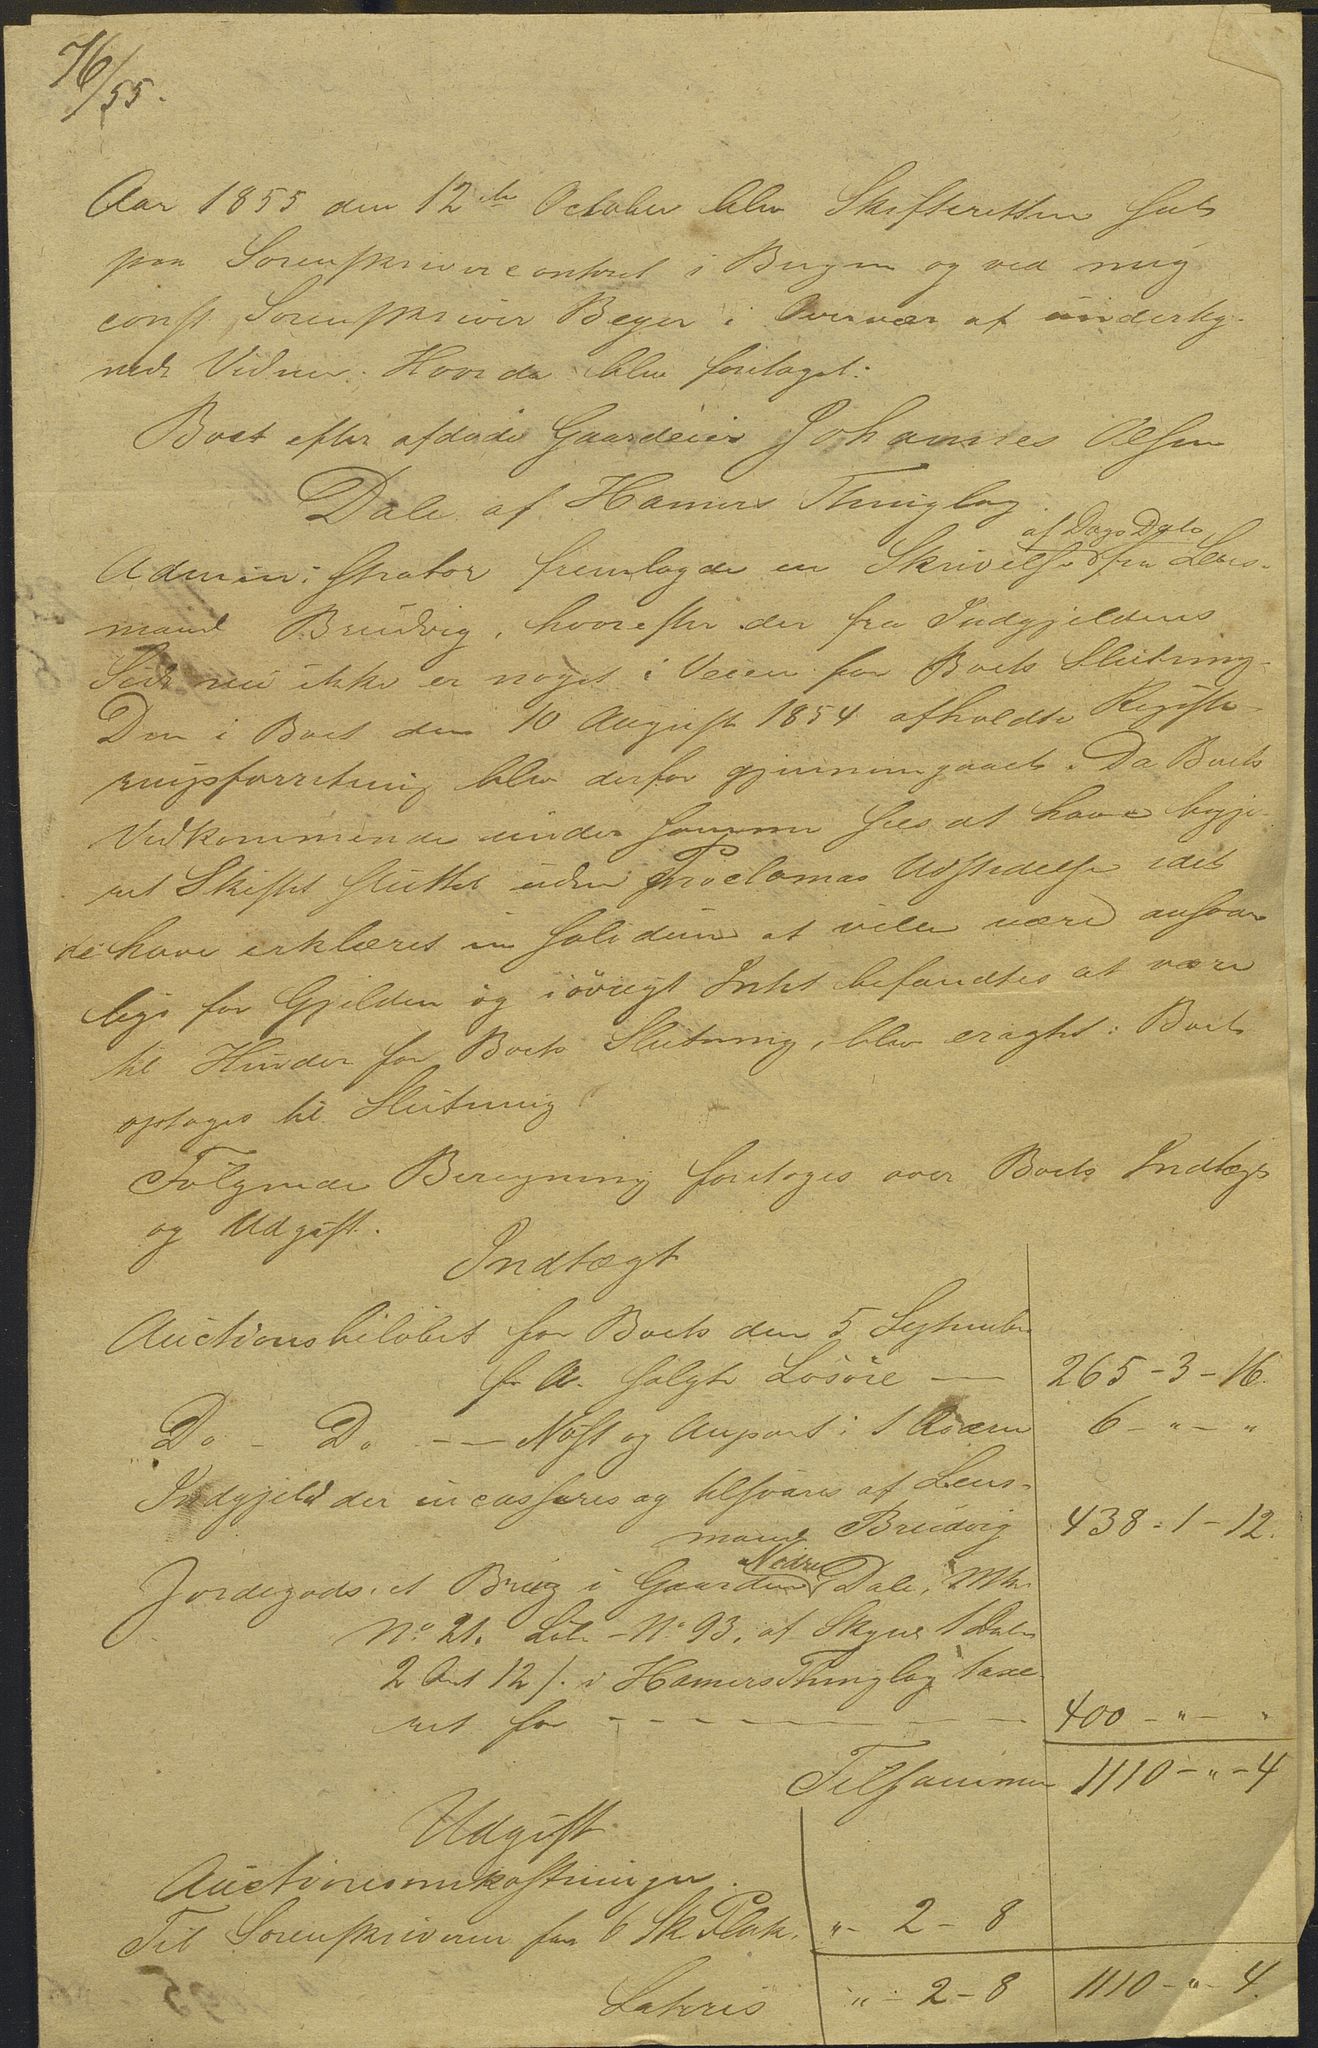 76/55.
Aar 1855 den 12te October blev Skifteretten sat
paa Sorenskrivercontoret i Bergen og ved mig
const. Sorenskriver Beyer i Overvær af underteg-
nede Vidner. Hvorda blev foretaget:
Boet efter afdøde Gaardeier Johannes Olsen
Dale af Hamers Thinglag
af Dags Dato
Administrator fremlagde en Skrivelse fra Lens-
mand Breidvig, hvorefter der fra Indgjeldens
Side nu ikke er noget i Veien for Boets Slutning.
Den i Boet den 10 August 1854 afholdte Registe-
ringsforretning blev derfor gjennemgaaet. Da Boets
Vedkommende under samme sees at have begjæ-
ret Skiftet sluttet uden Proclamas Udstedelse idet
de have erklæret in solidum at ville være ansvar-
lige for Gjelden og iøvrigt Intet befandtes at være
til Hinder for Boets Slutning, blev eragtet: Boet
optages til Slutning.
Følgende Beregning foretages over Boets Indtægt
og Udgift.
Indtægt
Auctionsbeløbet for Boets den 5 September
f. A. solgte Løsøre — 265-3-16.
Do - Do -- Nøst og Anpart i 1 Qværn 6 - " - "
Indgjeld der incasseres og tilsvares af Lens-
mand Breidvig 438-1-12.
Nedre
Jordegods. et Brug i Gaarden Dale, Mtr.
No 21. Løb-No 93. af Skyld 1 Daler
2 Ort 12 s. i Hamers Thinglag taxe-
ret for - - - - - 400 - " - "
Tilsammen 1110 - " - 4
Udgift
Auctionsomkostninger.
Til Sorenskriveren for 6 Sk. Plak. " - 2 - 8
Lateris " - 2 - 8 1110 - " - 4.